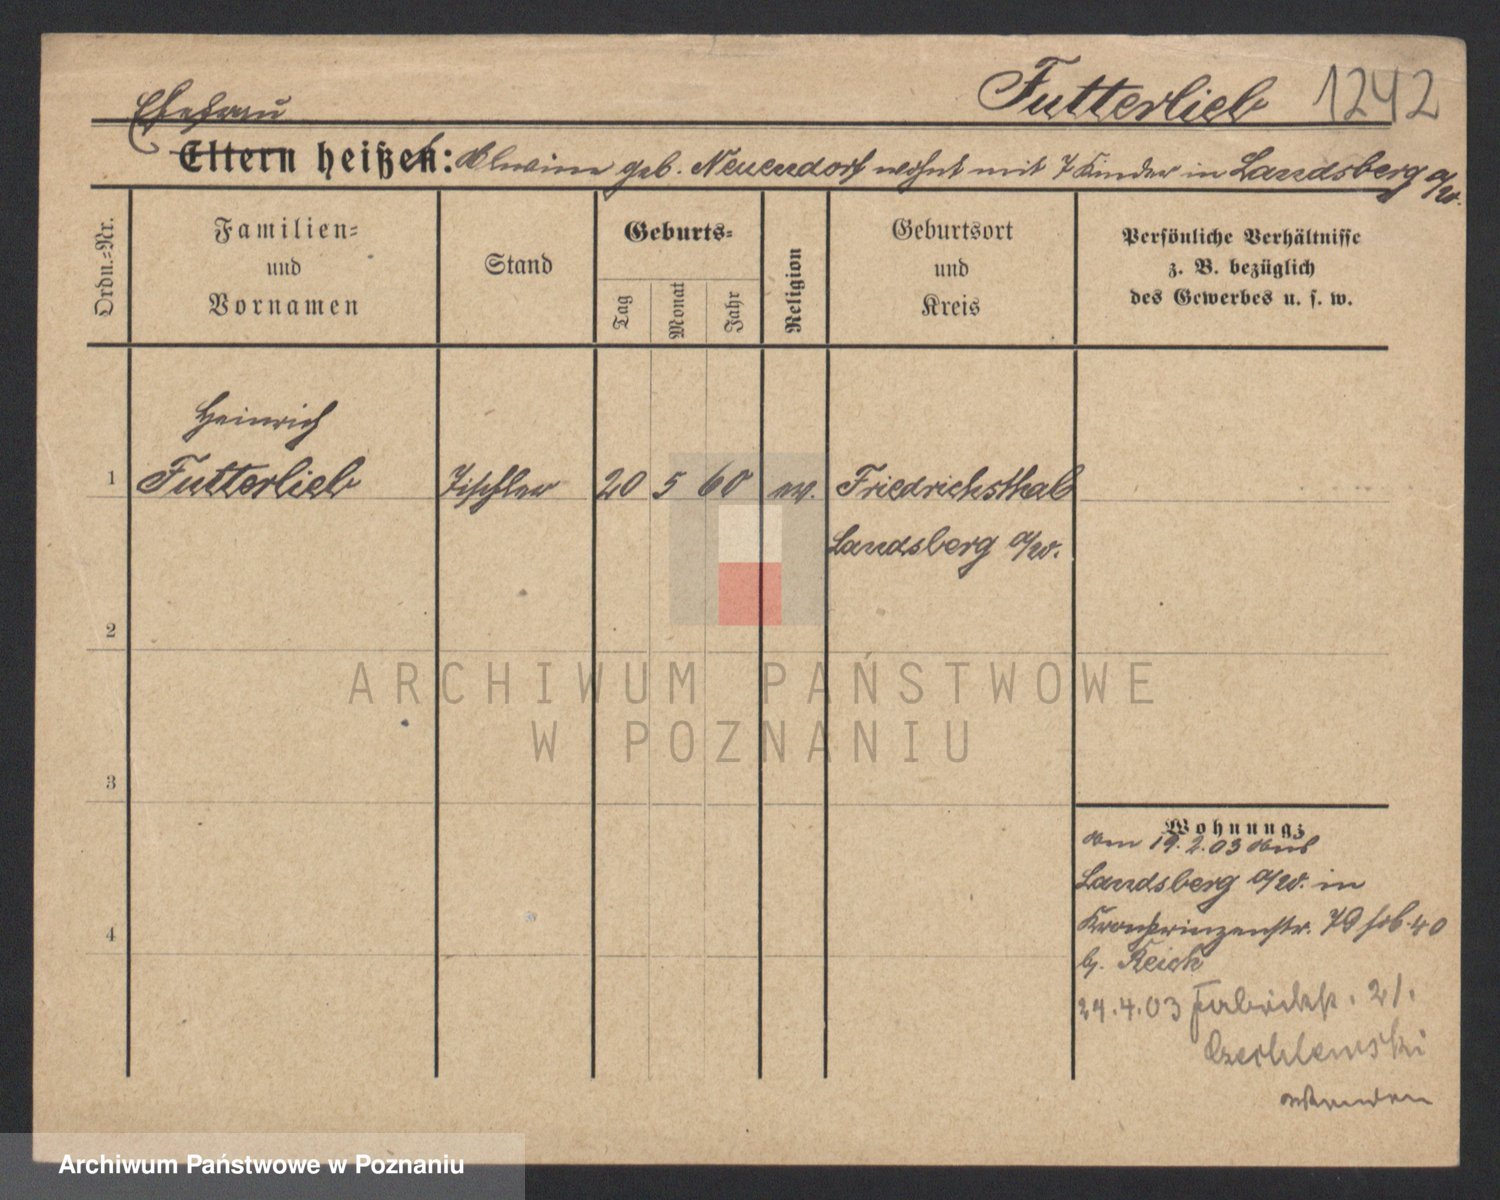 Futterlieb 1242
Ehefrau
Eltern heißen: Alwine geb. Neuendorf wohnt mit 7 Kinder in Landsberg a/W.
Ordn.-Nr.
Familien-
und
Vornamen
Stand
Geburts-
Tag
Monat
Jahr
Religion
Geburtsort
und
Kreis
Persönliche Verhältnisse
z. B. bezüglich
des Gewerbes u. s. w.
Heinrich
1 Futterlieb Tischler 20 5 60 ev. Friedrichsthal
Landsberg a/W.
2
3
4
Wohnung:
Am 19.2.03 aus
Landsberg a/W. in
Kronprinzenstr. 79 40
b. Reich
29.4.03 Fabrikstr. 21.
Czechlewski
wenden
ARCHIWUM PAŃSTWOWE
W POZNANIU
Archiwum Państwowe w Poznaniu